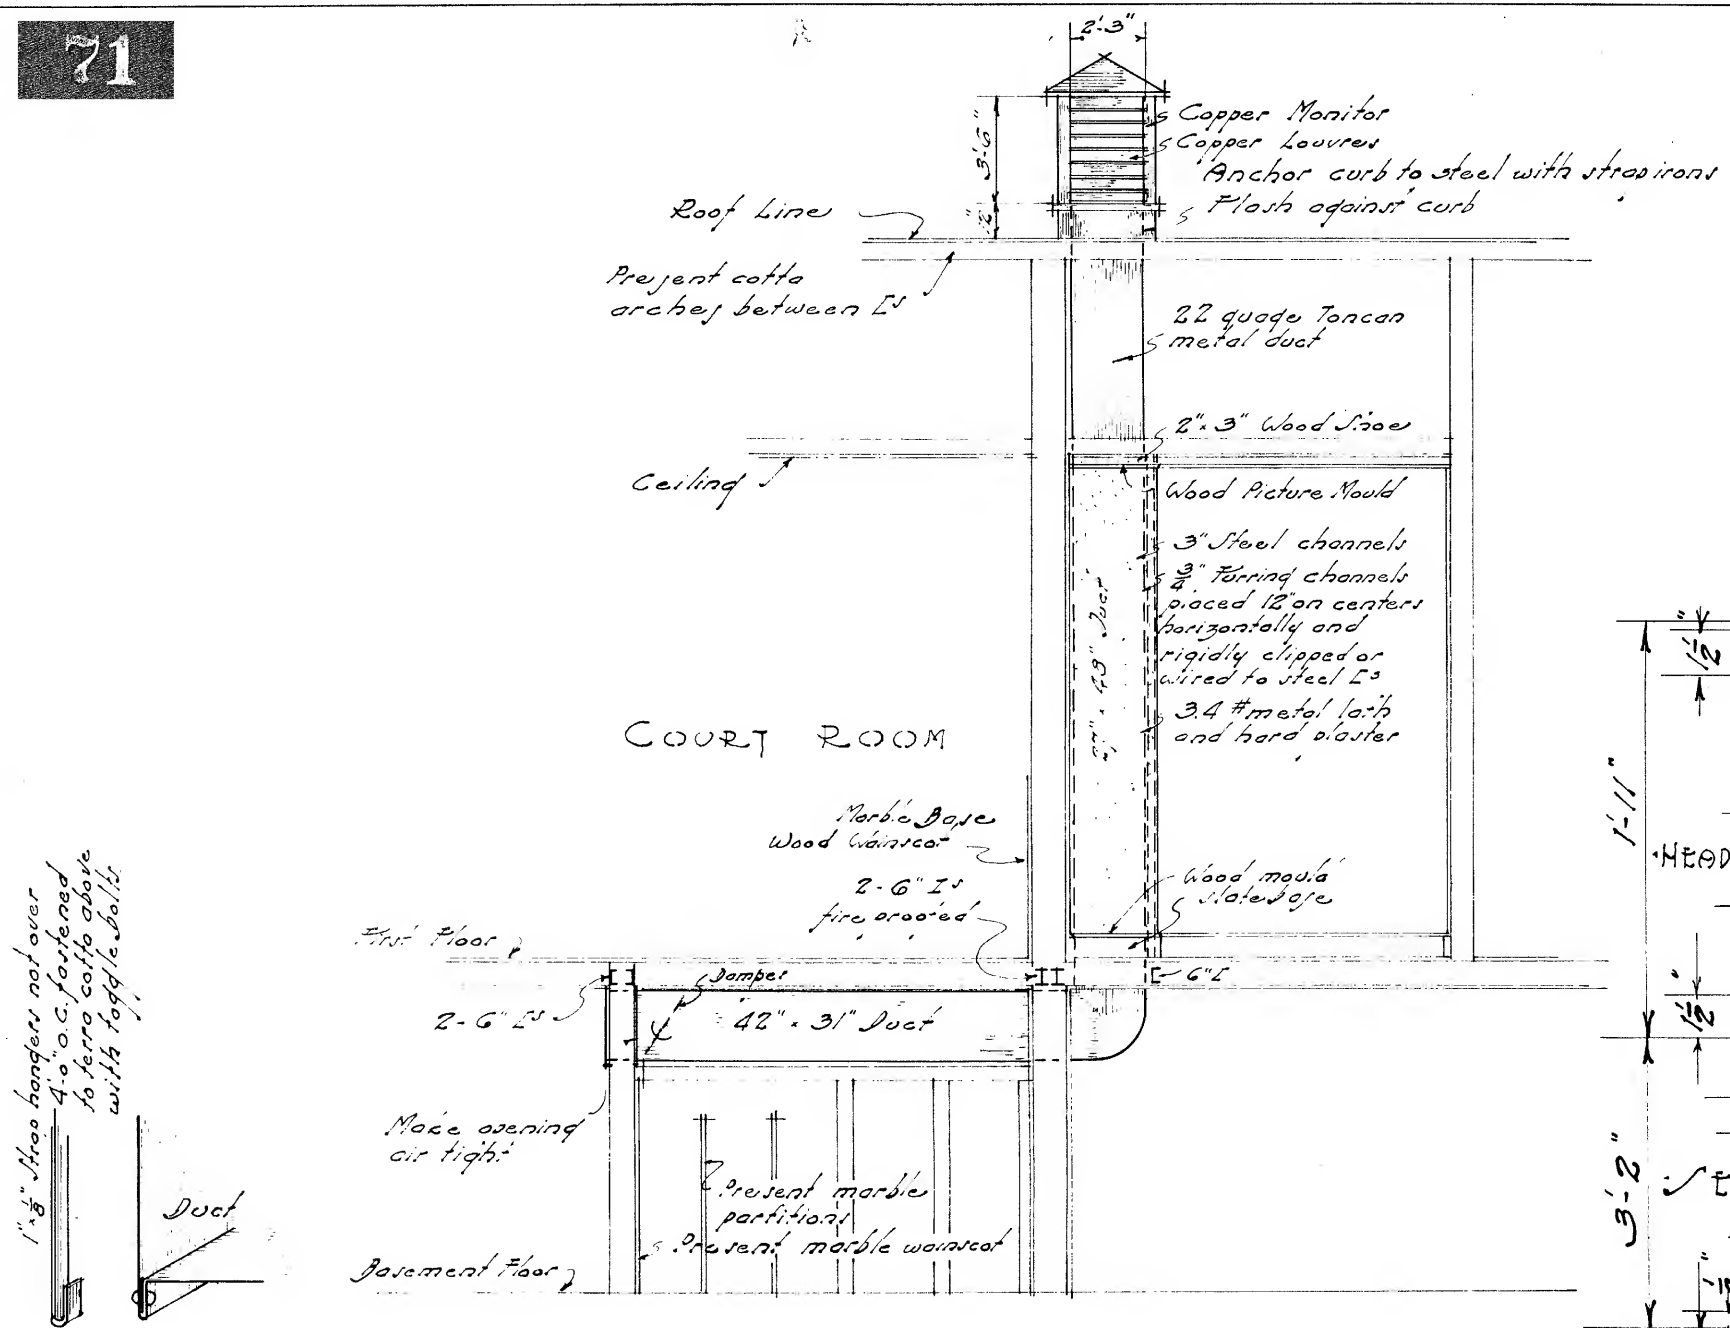 71
2'-3"
3'-6"
12"
Copper Monitor
Copper Louvres
Anchor curb to steel with strap irons
Flash against curb
Roof Line
Present cotta
arches between Is
22 guage Toncan
metal duct
2" x 3" Wood Shoe
Ceiling
Wood Picture Mould
3" Steel channels
3/4" Furring channels
placed 12" on centers
horizontally and
rigidly clipped or
wired to steel [s
3.4 # metal lath
and hard plaster
48" Duct
COURT ROOM
Marble Base
Wood Wainscot
2-6" Is
fire proofed
Wood mould
slate base
First Floor
Damper
6" [
2-6" [s
42" x 31" Duct
Make opening
air tight
Present marble
partitions
Present marble wainscot
Basement Floor
1" x 1/8" Strap hangers not over
4'-0" o.c. fastened
to terra cotta above
with toggle bolts
Duct
1 1/2"
1'-11"
HEAD
1 1/2"
3'-2"